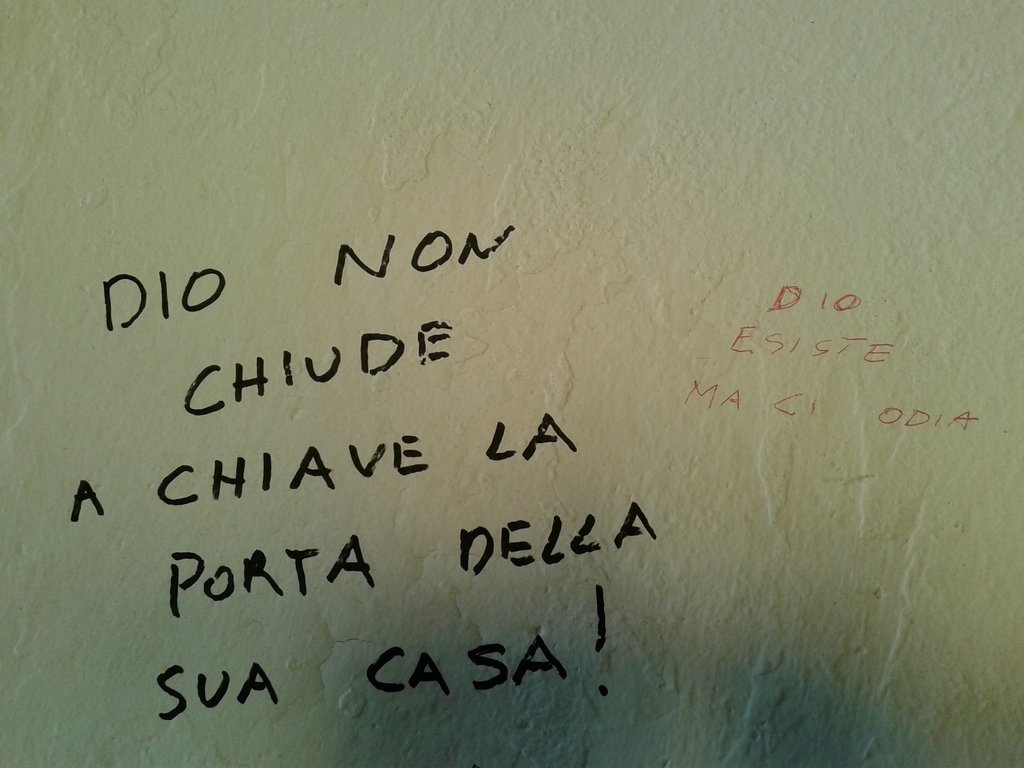 DIO NON
CHIUDE
A CHIAVE LA
PORTA DELLA
SUA CASA!
DIO
ESISTE
MA CI ODIA